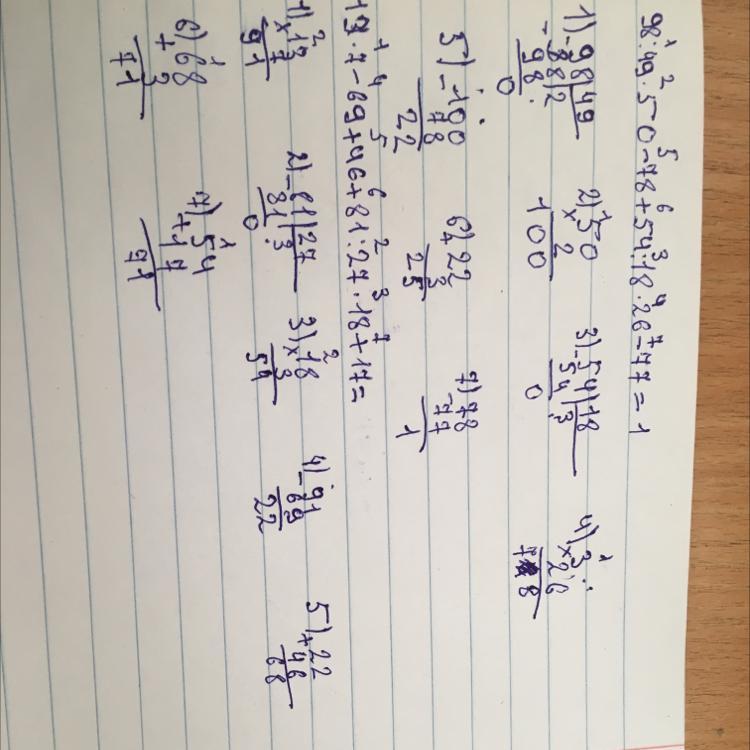 98:49·50-78+54:18·26-77=1
1) 98|49 2) 50 3) 54|18 4) 3
-98|2 ×2 -54|3 ×26
0 100 0 78
5) 100 6) 22 7) 78
-78 +3 -77
22 25 1
13·7-69+46+81:27·18+17=
1) 13 2) 81|27 3) 18 4) 91 5) 22
×7 -81|3 ×3 -69 +46
91 0 54 22 68
6) 68 7) 54
+3 +17
71 71